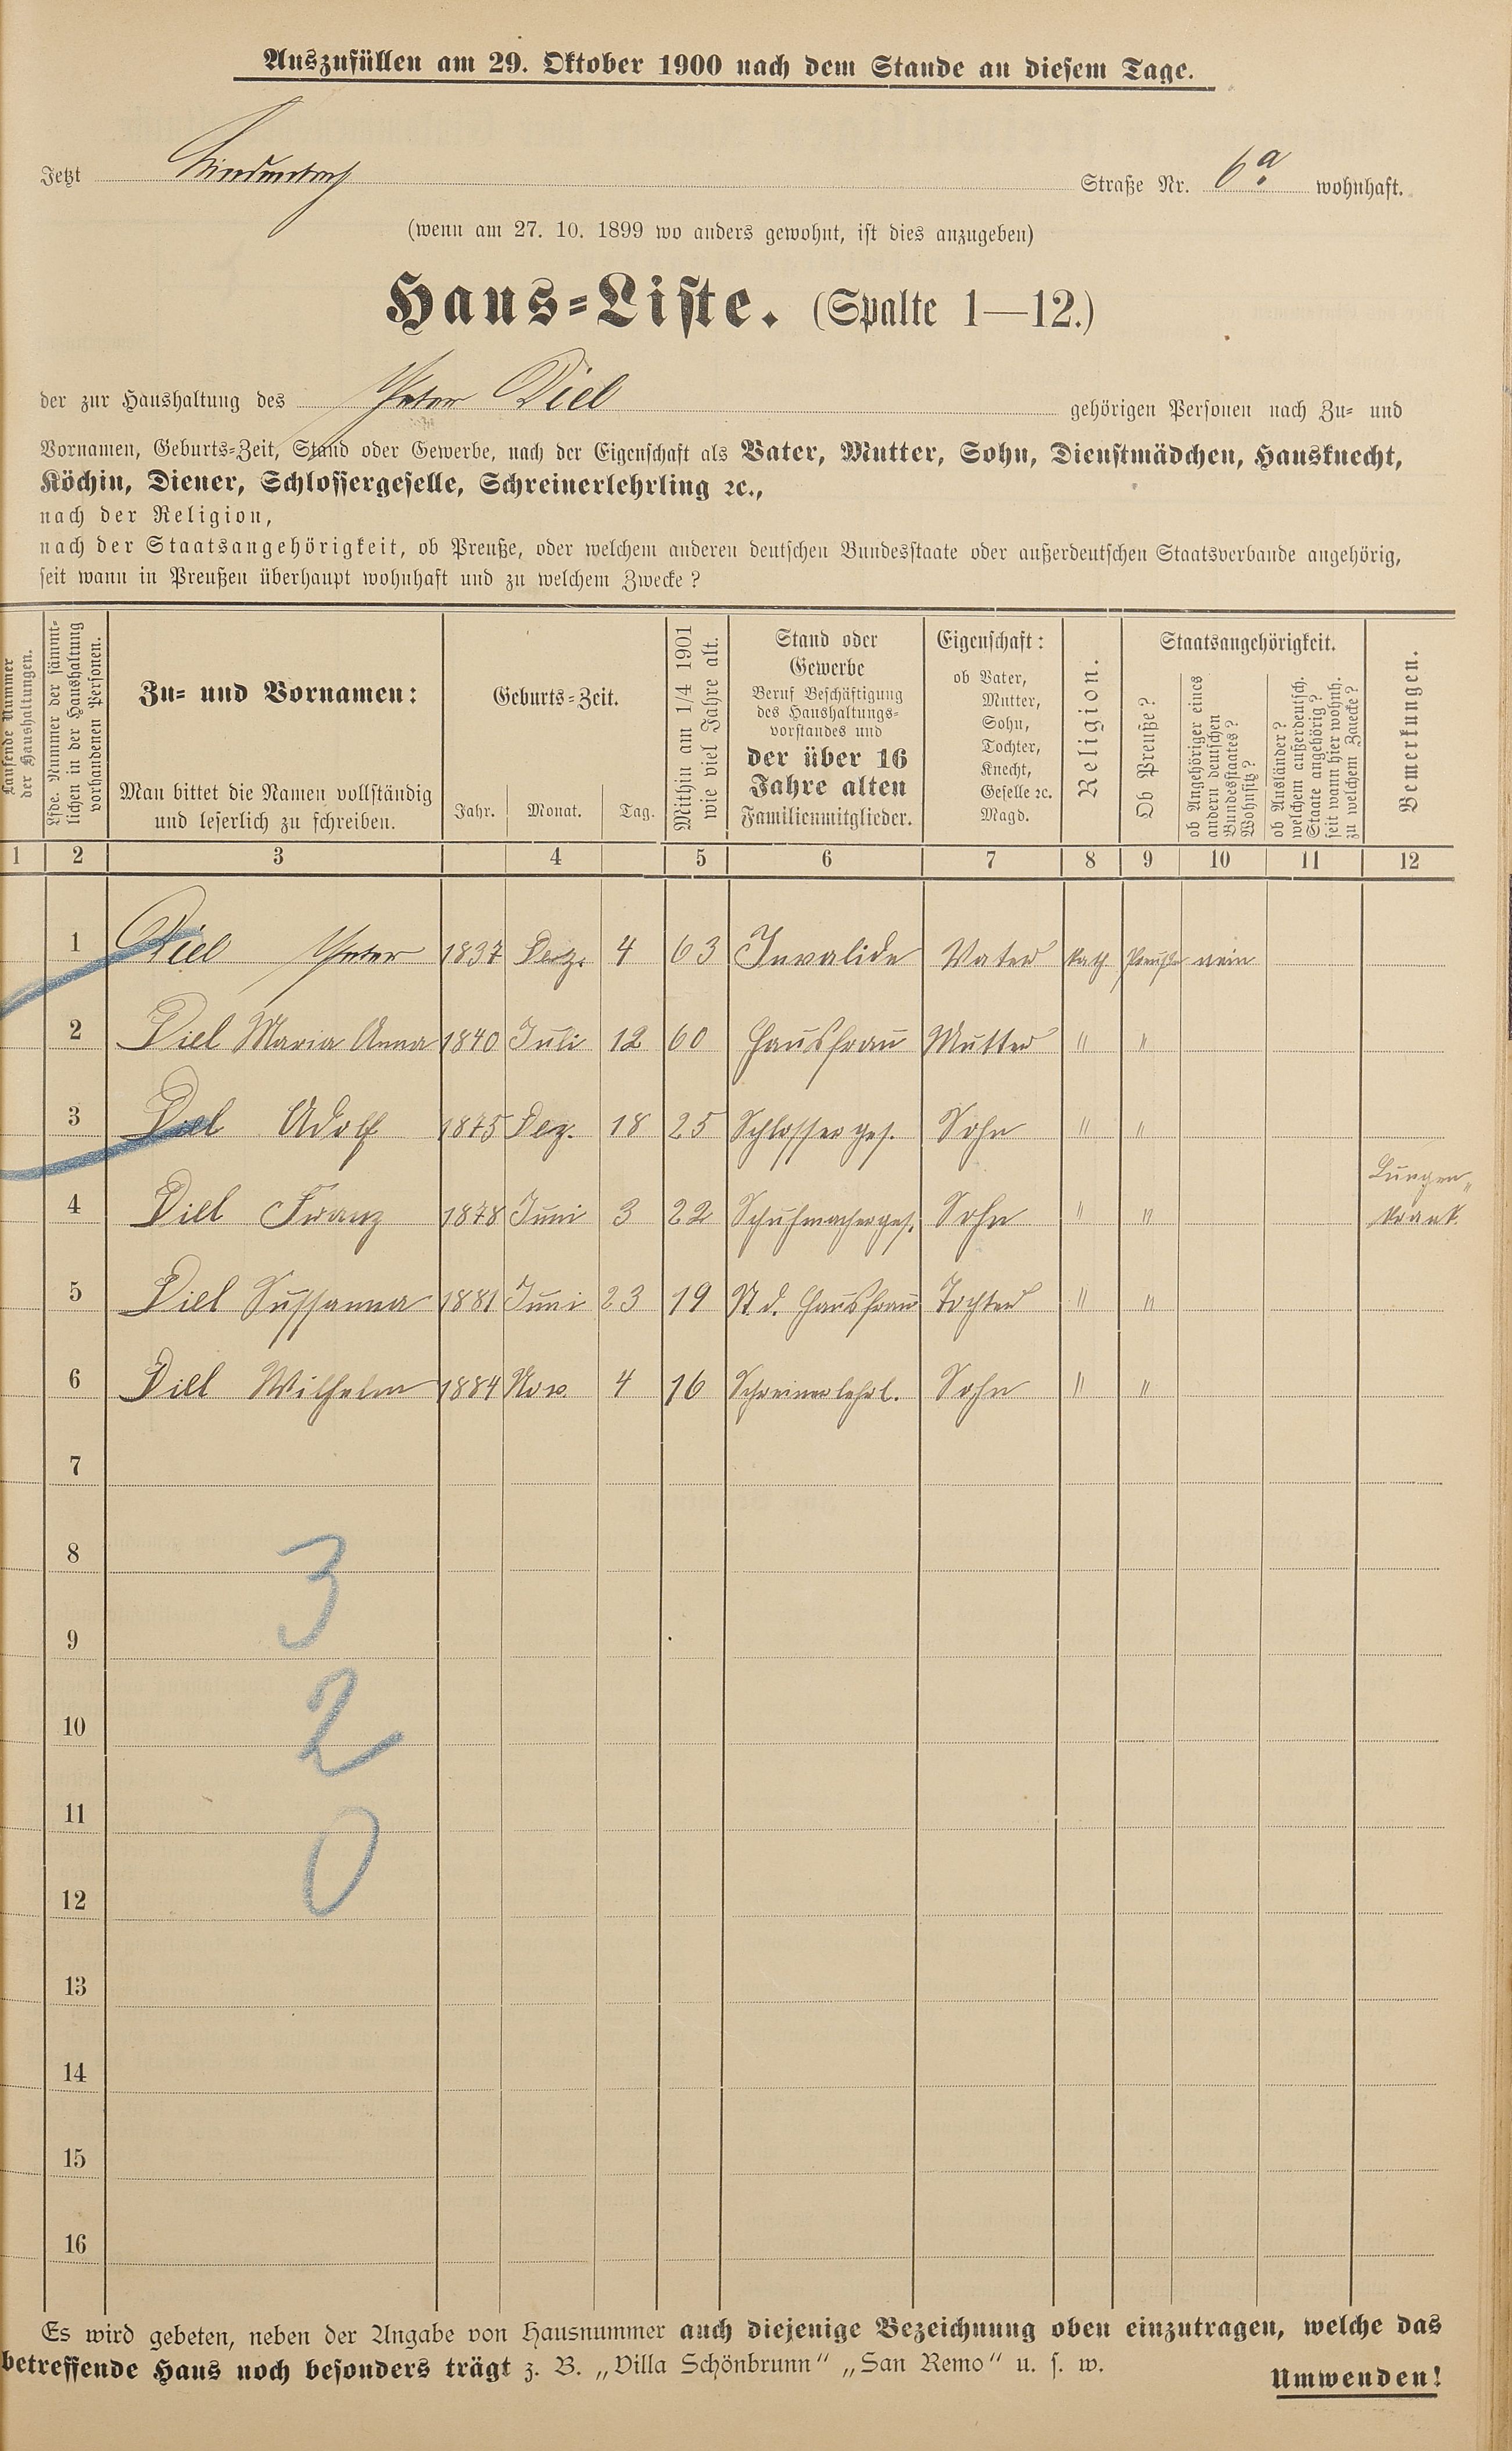 Auszufüllen am 29. Oktober 1900 nach dem Stande an diesem Tage.
Jetzt Straße Nr. 6a wohnhaft.
(wenn am 27. 10. 1899 wo anders gewohnt, ist dies anzugeben)
Haus-Liste. (Spalte 1—12.)
der zur Haushaltung des Peter Diel gehörigen Personen nach Zu- und
Vornamen, Geburts-Zeit, Stand oder Gewerbe, nach der Eigenschaft als Vater, Mutter, Sohn, Dienstmädchen, Hausknecht,
Köchin, Diener, Schlossergeselle, Schreinerlehrling ꝛc.,
nach der Religion,
nach der Staatsangehörigkeit, ob Preuße, oder welchem anderen deutschen Bundesstaate oder außerdeutschen Staatsverbande angehörig,
seit wann in Preußen überhaupt wohnhaft und zu welchem Zwecke?
Laufende Nummer
der Haushaltungen.
Lfde. Nummer der sämmt-
lichen in der Haushaltung
vorhandenen Personen.
Zu- und Vornamen:
Man bittet die Namen vollständig
und leserlich zu schreiben.
Geburts-Zeit.
Jahr. Monat. Tag.
Mithin am 1/4 1901
wie viel Jahre alt.
Stand oder
Gewerbe
Beruf Beschäftigung
des Haushaltungs-
vorstandes und
der über 16
Jahre alten
Familienmitglieder.
Eigenschaft:
ob Vater,
Mutter,
Sohn,
Tochter,
Knecht,
Geselle ꝛc.
Magd.
Religion.
Staatsangehörigkeit.
Ob Preuße?
ob Angehöriger eines
andern deutschen
Bundesstaates?
Wohnsitz?
ob Ausländer?
welchem außerdeutsch.
Staate angehörig?
seit wann hier wohnh.
zu welchem Zwecke?
Bemerkungen.
1 2 3 4 5 6 7 8 9 10 11 12
1 Diel Peter 1837 Dez. 4 63 Invalide Vater kath Preuße nein
2 Diel Maria Anna 1840 Juli 12 60 Hausfrau Mutter " "
3 Diel Adolf 1875 Dez. 18 25 Schlosserges. Sohn " "
4 Diel Franz 1878 Juni 3 22 Schuhmacherges. Sohn " " Lungen-
krank.
5 Diel Sussanna 1881 Juni 23 19 St. d. Hausfrau Tochter " "
6 Diel Wilhelm 1884 Nov. 4 16 Schreinerlehrl. Sohn " "
7
8
3
9
10
2
11
0
12
13
14
15
16
Es wird gebeten, neben der Angabe von Hausnummer auch diejenige Bezeichnung oben einzutragen, welche das
betreffende Haus noch besonders trägt z. B. „Villa Schönbrunn“ „San Remo“ u. s. w.
Umwenden!